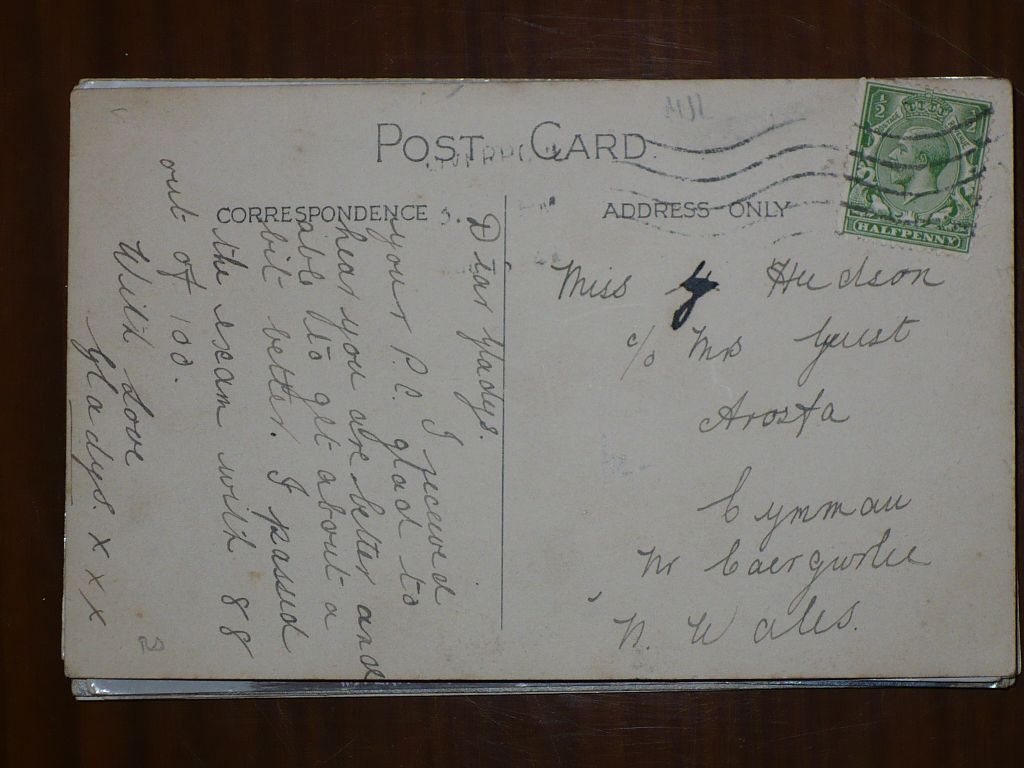 POST CARD
CORRESPONDENCE
ADDRESS ONLY
HALFPENNY
Dear Gladys.
I received
your P.C. glad to
hear you are better and
able to get about a
bit better. I passed
the exam with 88
out of 100.
With Love
Gladys. x x x
Miss G Hudson
c/o Mrs Guest
Arosfa
Cymmau
Nr Caergwrle
N. Wales.